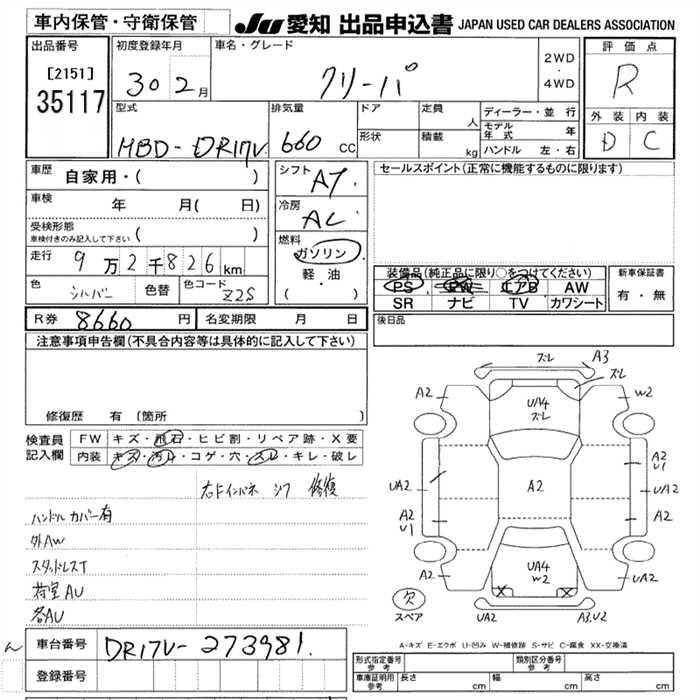 車内保管・守衛保管
JU 愛知 出品申込書 JAPAN USED CAR DEALERS ASSOCIATION
出品番号 初度登録年月 車名・グレード 2WD・4WD 評価点
[2151]
35117
30 2月 クリーパ R
型式 排気量 ドア 定員 人 ディーラー・並行 外装 内装
モデル年式 年
HBD-DR17V 660cc 形状 積載 kg ハンドル 左・右 D C
車歴 自家用・( ) シフト AT セールスポイント(正常に機能するものに限ります)
車検 年 月( 日) 冷房 AC
受検形態
車検付きのみ記入して下さい ( ) 燃料
走行 9万2千826km ガソリン 装備品(純正品に限り○をつけてください) 新車保証書
色 シルバー 色替 色コード Z2S 軽・油 PS PW エアB AW 有・無
( ) SR ナビ TV カワシート
R券 8660円 名変期限 月 日 後日品
注意事項申告欄(不具合内容等は具体的に記入して下さい)
修復歴 有 〔箇所
検査員記入欄 FW キズ・飛石・ヒビ割・リペア跡・X要
内装 キズ・汚れ・コゲ・穴・スレ・キレ・破レ
ズレ A3
A2 ズレ W2
UA4
ズレ
A2
U1
UA2 A2 UA2
A2
U1 A2
A2 UA4
W2 UA2
欠
スペア UA2 A3.U2
右Fインパネ シワ 修復
ハンドルカバー有
外AW
スタッドレスT
荷室AU
各AU
A-キズ E-エクボ U-凹み W-補修跡 S-サビ C-腐食 XX-交換済
ん 車台番号 DR17V-273981.
登録番号
形式指定番号 参考 類別区分番号 参考
車庫証明用 参考 長さ cm 幅 cm 高さ cm